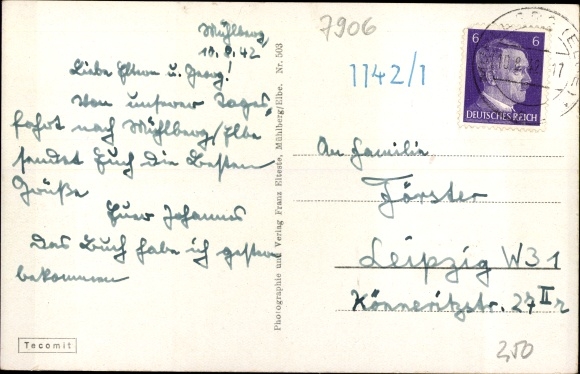 7906
Mühlberg,
10.9.42.
Liebe Eltern u. Georg!
Von unserer Tages-
fahrt nach Mühlberg/Elbe
sendet Euch die besten
Grüße
Euer Johannes
Das Buch habe ich gestern
bekommen
Tecomit
Photographie und Verlag Franz Elteste, Mühlberg/Elbe. Nr. 503
1142/1
6 6
DEUTSCHES REICH
An Familie
Förster
Leipzig W31
Könneritzstr. 27 II r
2,50